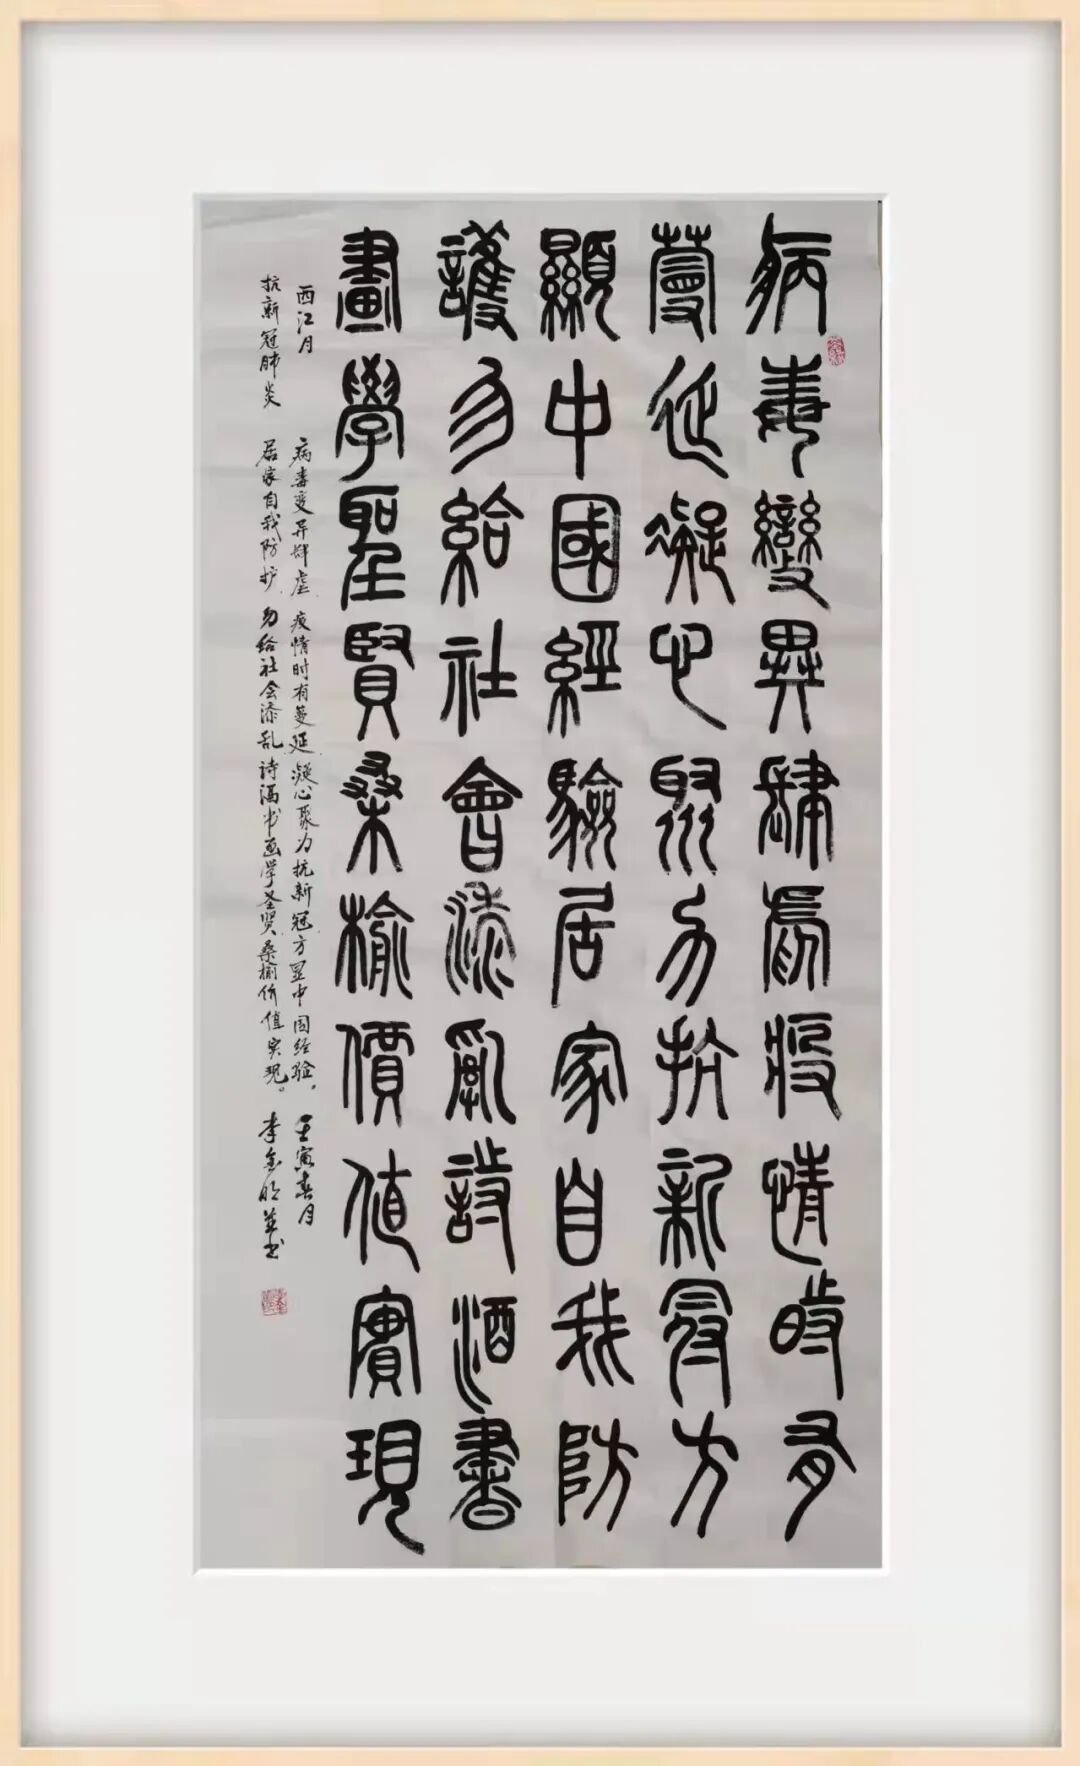 病毒變異肆虐疫情時有
蔓延凝心聚力抗新冠方
顯中國經驗居家自我防
護勿給社會添亂詩酒書
畫學聖賢桑榆價值實現
西江月 病毒变异肆虐 疫情时有蔓延 凝心聚力抗新冠 方显中国经验。 壬寅春月
抗新冠肺炎 居家自我防护 勿给社会添乱 诗酒书画学圣贤 桑榆价值实现。 李金明并书